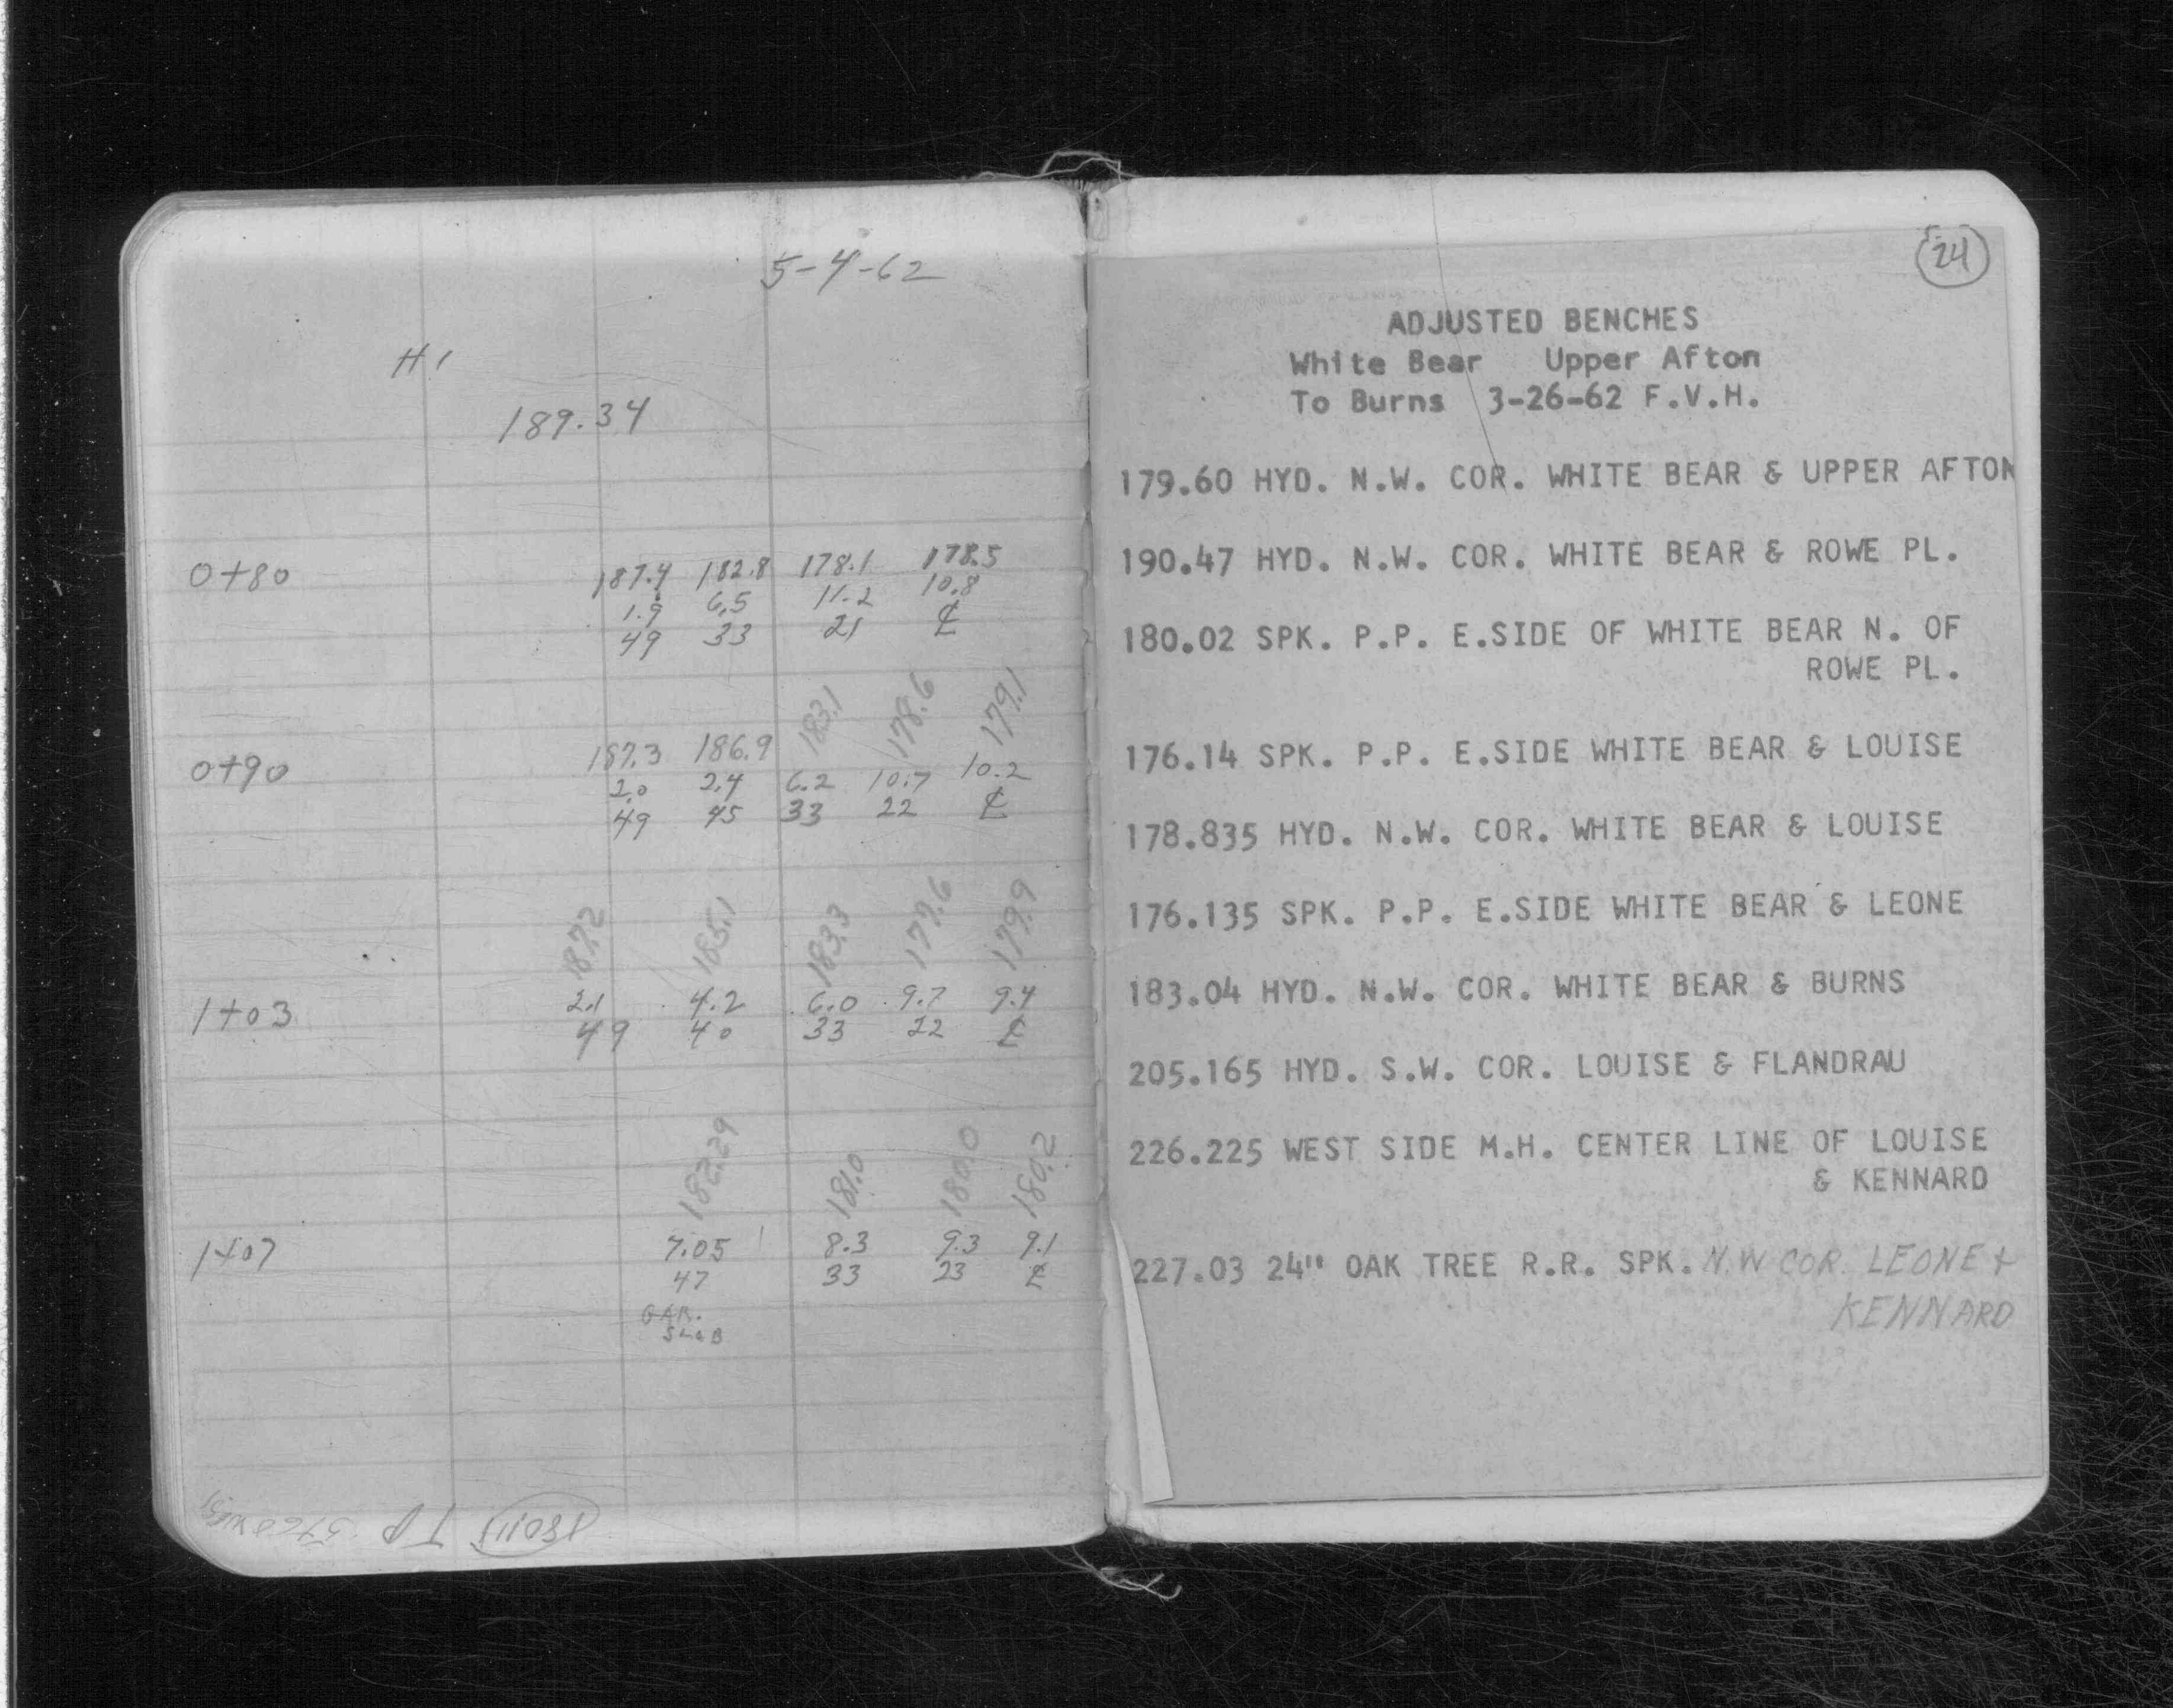 5-4-62
H I
189.34
0+80 187.4 182.8 178.1 178.5
1.9 6.5 11.2 10.8
49 33 21 ℄
183.1 178.6 179.1
0+90 187.3 186.9
2.0 2.4 6.2 10.7 10.2
49 45 33 22 ℄
187.2 185.1 183.3 179.6 179.9
1+03 2.1 4.2 6.0 9.7 9.4
49 40 33 22 ℄
182.29 181.0 180.0 180.2
1+07 7.05 8.3 9.3 9.1
47 33 23 ℄
GAR.
SLAB
TP
24
ADJUSTED BENCHES
White Bear Upper Afton
To Burns 3-26-62 F.V.H.
179.60 HYD. N.W. COR. WHITE BEAR & UPPER AFTON
190.47 HYD. N.W. COR. WHITE BEAR & ROWE PL.
180.02 SPK. P.P. E.SIDE OF WHITE BEAR N. OF
ROWE PL.
176.14 SPK. P.P. E.SIDE WHITE BEAR & LOUISE
178.835 HYD. N.W. COR. WHITE BEAR & LOUISE
176.135 SPK. P.P. E.SIDE WHITE BEAR & LEONE
183.04 HYD. N.W. COR. WHITE BEAR & BURNS
205.165 HYD. S.W. COR. LOUISE & FLANDRAU
226.225 WEST SIDE M.H. CENTER LINE OF LOUISE
& KENNARD
227.03 24" OAK TREE R.R. SPK. N.W COR. LEONE &
KENNARD